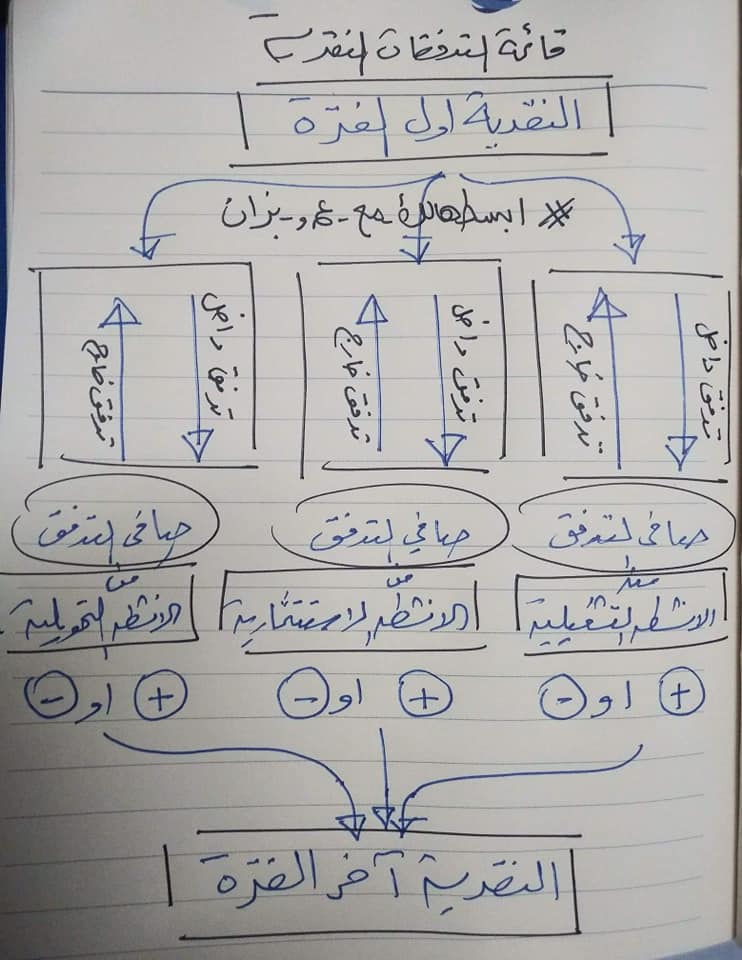 قائمة التدفقات النقدية
النقدية اول الفترة
# ابسطهالك مع
تدفق داخل
تدفق خارج
تدفق داخل
تدفق خارج
تدفق داخل
تدفق خارج
صافى التدفق
من
الانشطه التشغيلية
+ او -
صافي التدفق
من
الانشطه الاستثمارية
+ او -
صافى التدفق
من
الانشطه التمويلية
+ او -
النقدية آخر الفترة